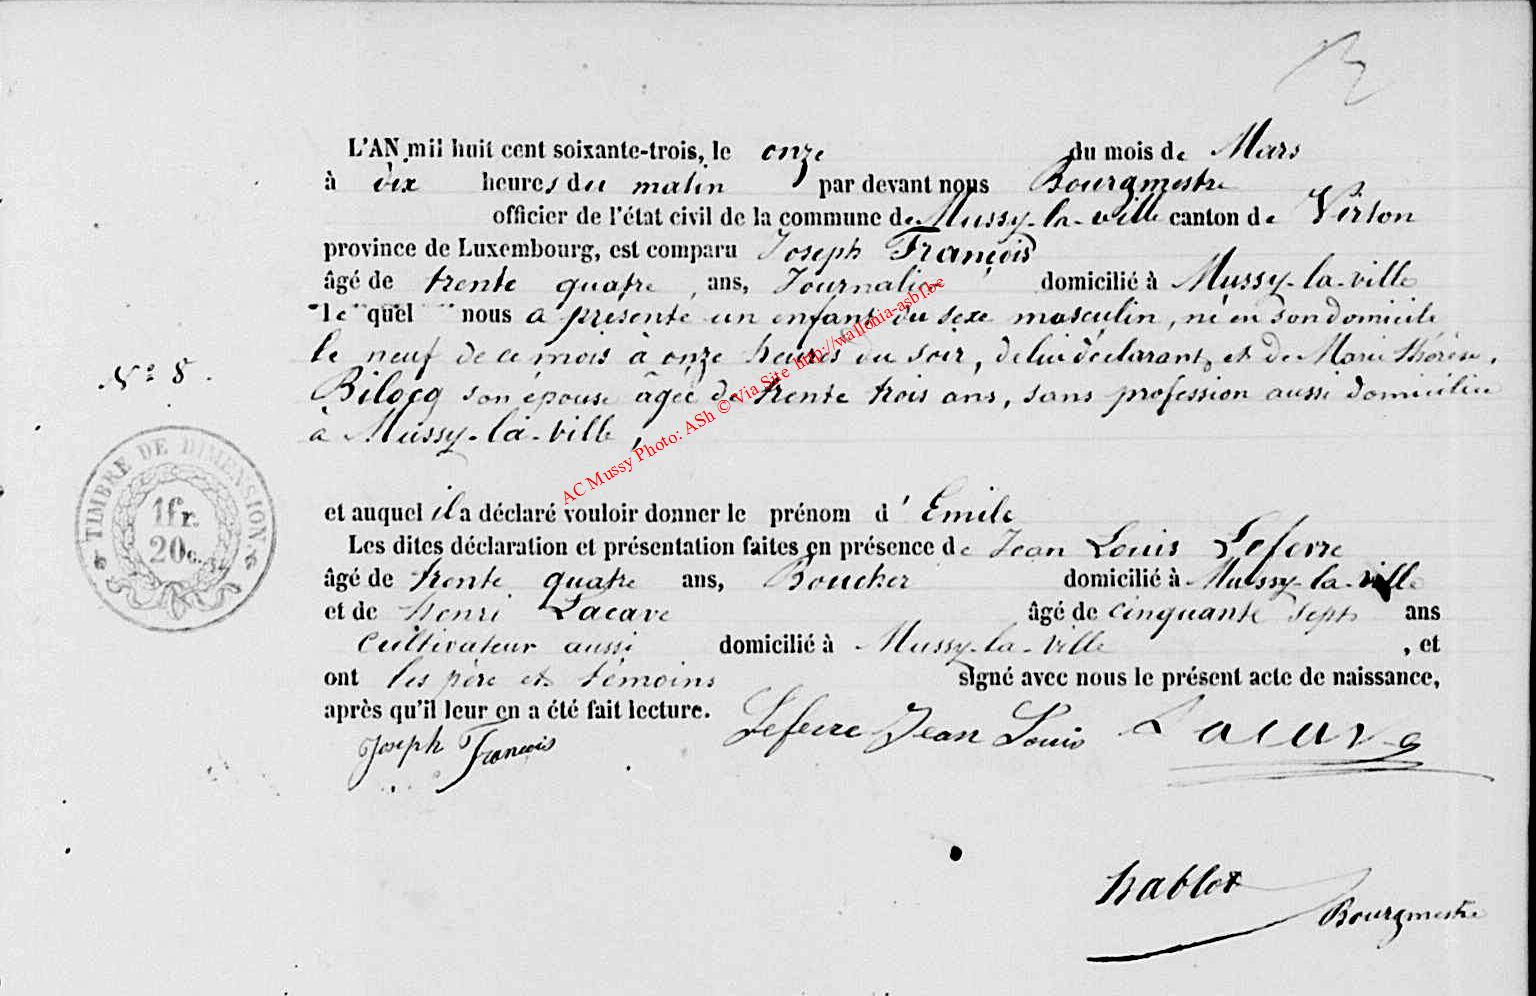 L'AN mil huit cent soixante-trois, le onze du mois de Mars
à dix heures du matin par devant nous Bourgmestre
officier de l'état civil de la commune de Mussy-la-ville canton de Virton
province de Luxembourg, est comparu Joseph François
âgé de trente quatre ans, Journalier domicilié à Mussy-la-ville
le quel nous a présenté un enfant du sexe masculin, né en son domicile
le neuf de ce mois à onze heures du soir, de lui déclarant, et de Marie Thérèse,
N° 8.
Bilocq son épouse âgée de trente trois ans, sans profession aussi domiciliée
à Mussy-la-ville,
AC Mussy Photo: ASh © Via Site http://wallonia-asbl.be
TIMBRE DE DIMENSION
1fr.
20c.
et auquel il a déclaré vouloir donner le prénom d'Emile
Les dites déclaration et présentation faites en présence de Jean Louis Lefevre
âgé de trente quatre ans, Boucher domicilié à Mussy-la-ville
et de Henri Lacave âgé de cinquante sept ans
cultivateur aussi domicilié à Mussy-la-ville, et
ont les père et témoins signé avec nous le présent acte de naissance,
après qu'il leur en a été fait lecture.
Joseph François Lefevre Jean Louis Lacave
hablot
Bourgmestre